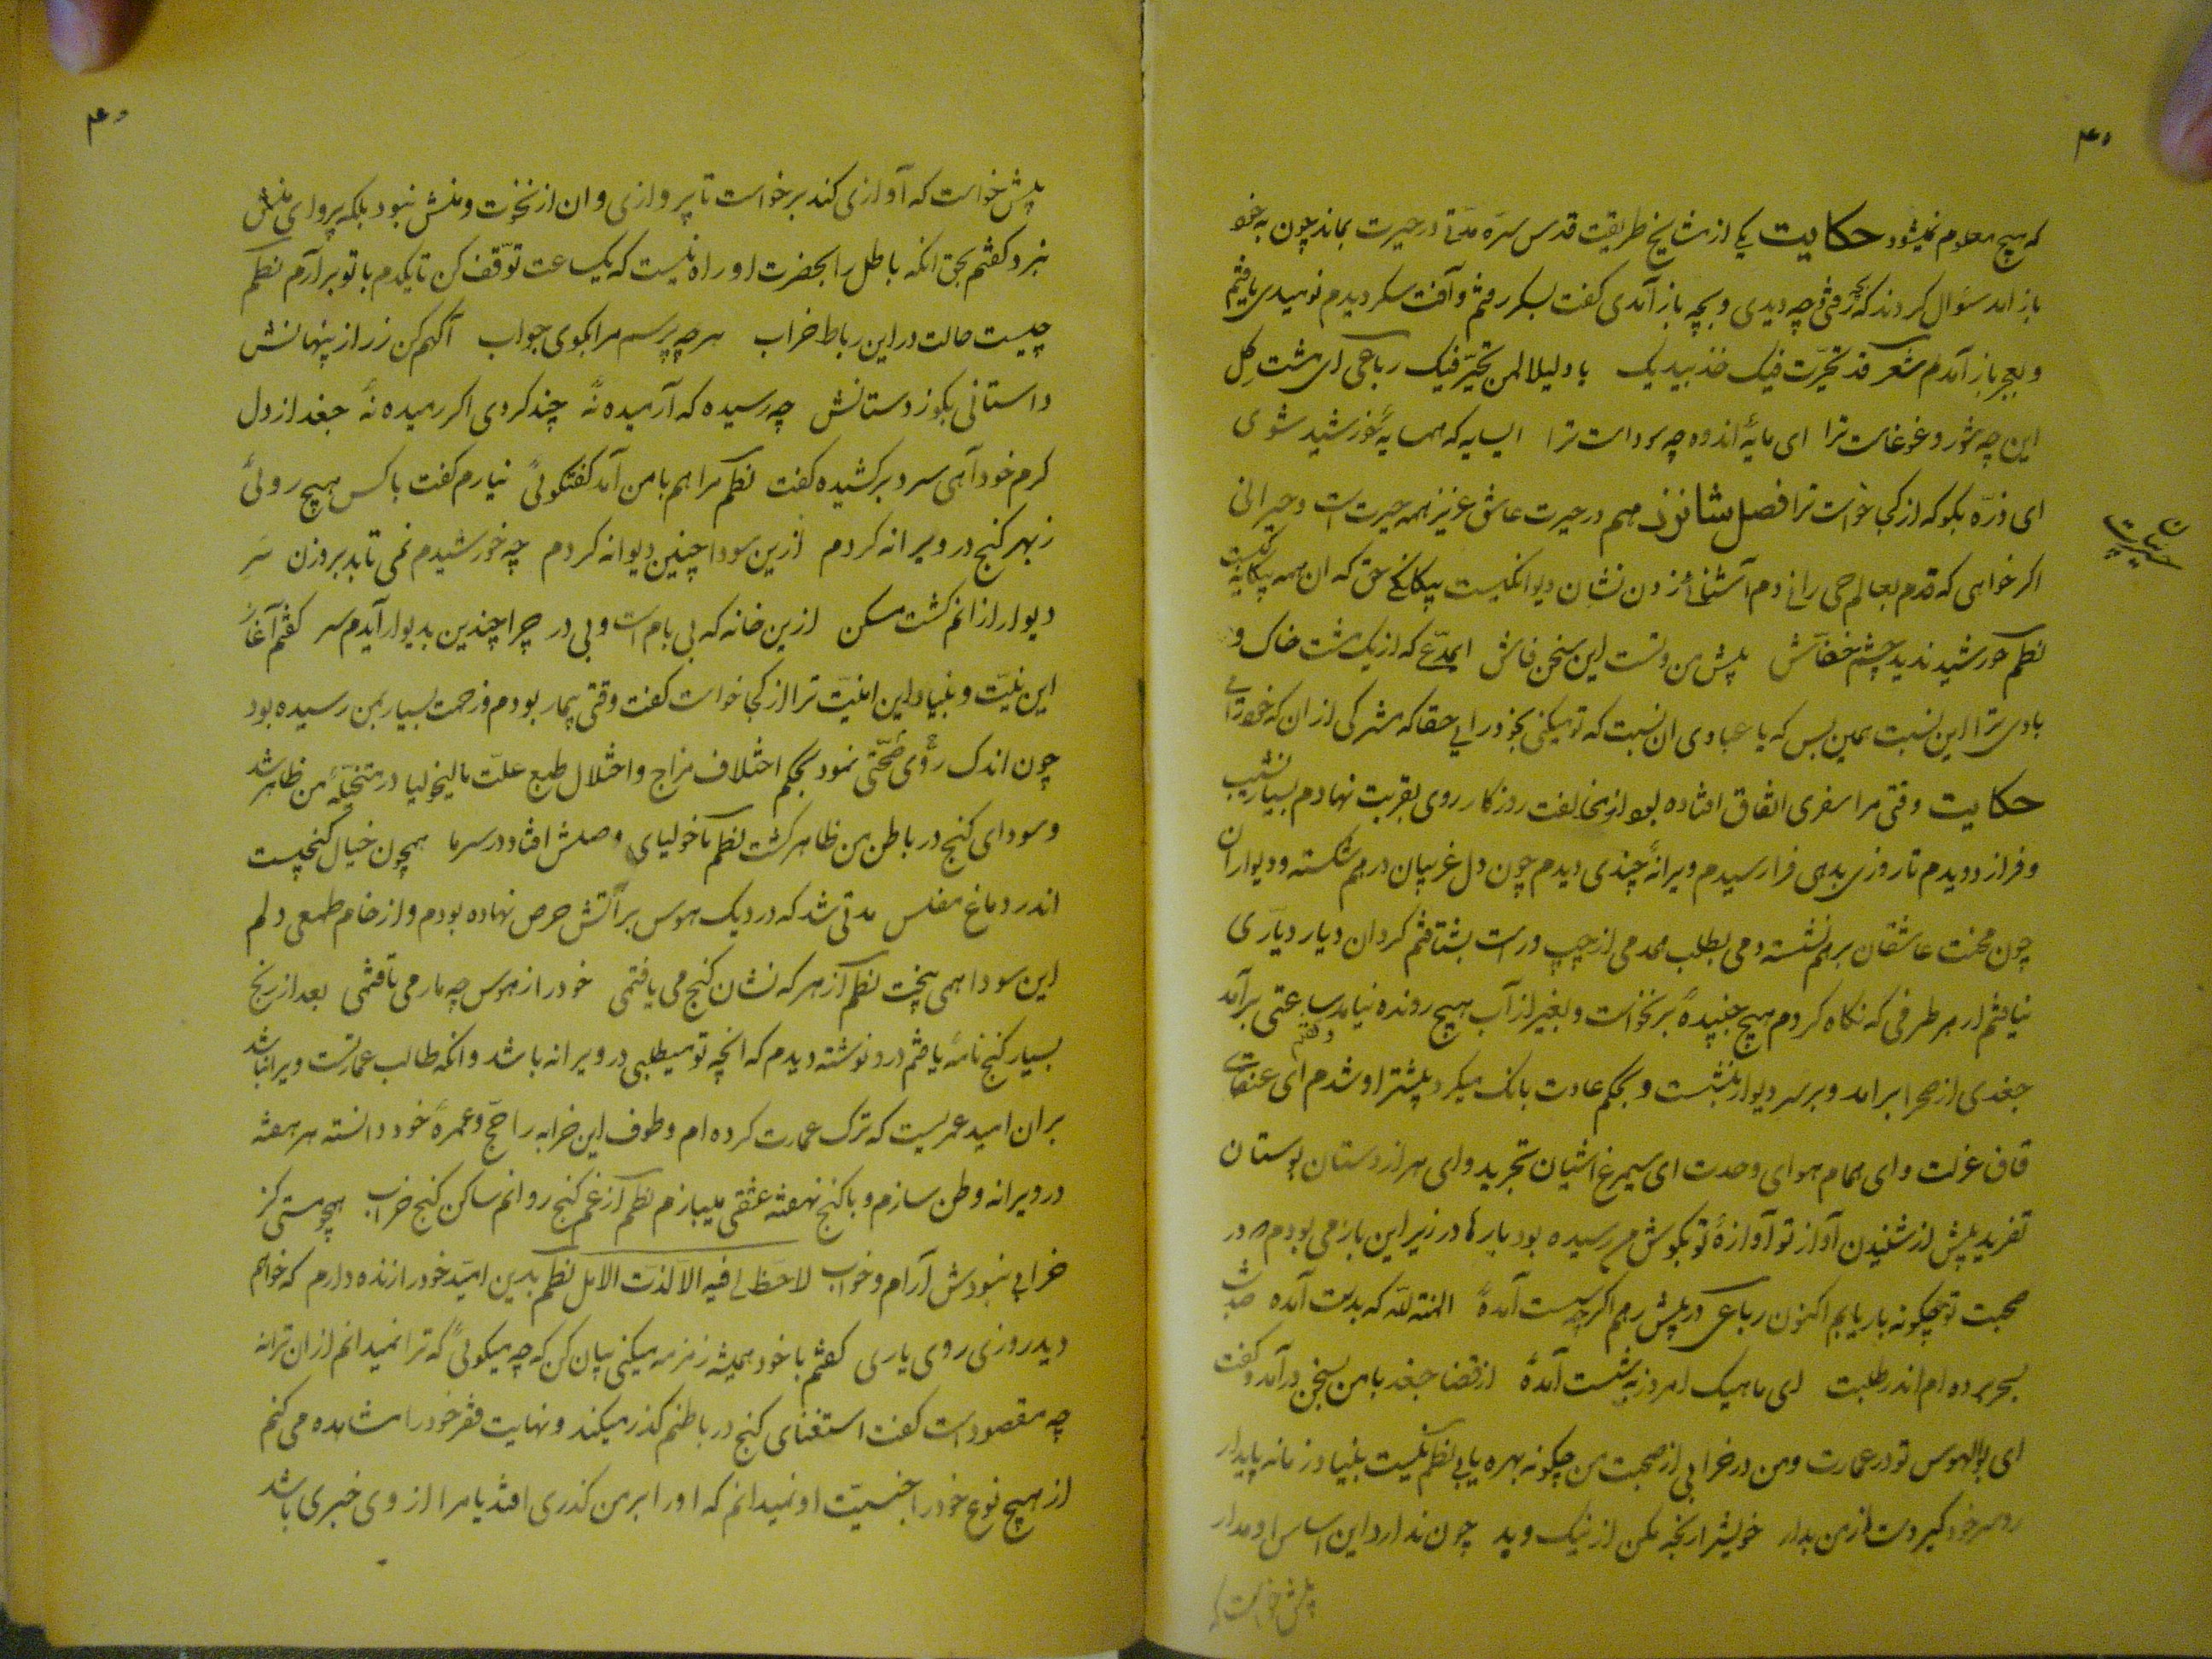 ۴۰
که هیچ معلوم نمیشود حکایت یکی از مشایخ طریقت قدس سره مدتی در حیرت بماند چون به خود
باز آمد سئوال کردند که بچه رفتی چه دیدی و بچه باز آمدی کفت بسکر رفتم و آفت سکر دیدم نومیدی یافتم
و بعجز باز آمدم شعر قد تحیرت فیک خذ بیدیک یا دلیلا لمن تحیر فیک رباعی ای مشت کل
این چه شور و غوغاست ترا ای مایهٔ اندوه چه سوداست ترا ای سایه که همسایهٔ خورشید شوی
ای ذره بکو که از کجا خواست ترا فصل شانزدهم در حیرت عاشق عزیز همه حیرت است و حیرانی
اکر خواهی که قدم بعالم حی رانی دم آشنائی زدن نشان دیوانکیست بیکانکی حق که ان همه بیکانیکیست
نظم خورشید ندید چشم خفاش پیش من و تست این سخن فاش ای مدعی که از یک مشت خاک و
بادی ترا این نسبت همین بس که یا عبادی ان نسبت که تو میکنی بخود رایی حقا که مشرکی از ان که خودرائی
حکایت وقتی مرا سفری اتفاق افتاده بود از مخالفت روزکار روی بغربت نهادم بسیار نشیب
و فراز دویدم تا روزی بدهی فرا رسیدم ویرانهٔ چندی دیدم چون دل غریبان درهم شکسته و دیوار ان
چون محنت عاشقان برهم نشسته دمی بطلب همدمی از چپ و راست بشتافتم کرد ان دیار دیاری
نیافتم از هر طرفی که نکاه کردم هیچ جنبیدهٔ برنخواست و بغیر از آب هیچ رونده نیامد ساعتی برآمد
جغدی از صحرا برامد و بر سر دیوار بنشست و بحکم عادت بانک میکرد پیشتر او شدم و کفتم ای عنقای
قاف عزلت و ای همام هوای وحدت ای سیمرغ اشیان تجرید و ای هزاردستان بوستان
تفرید پیش از شنیدن آواز تو آوازهٔ تو بکوش من رسیده بود بارها در زیر این بار می بودم که در
صحبت تو چکونه بار یابم اکنون رباعی در پیش رهم اکرچه سست آمدهٔ المنة لله که بدست آمده صد شب
بسحر برده ام اندر طلبت ای ماهیک امروز به شست آمدهٔ از قضا جغد با من بسخن درآمد و کفت
ای بوالهوس تو در عمارت و من در خرابی از صحبت من چکونه بهره یابی نظم نیست بنیاد زمانه پایدار
رو سر خود کیر دست از من بدار خویش را رنجه مکن از نیک و بد چون ندارد این اساس او مدار
پیش خواست که
پیش خواست که آوازی کند برخواست تا پروازی و ان از نخوت و منش نبود بلکه پروای منش
نبرد کفتم بحق انکه باطل را بحضرت او راه نیست که یک ساعت توقف کن تا یکدم با تو برآرم نظم
چیست حالت در این رباط خراب هرچه پرسم مرا بکوی جواب آکهم کن ز راز پنهانش
داستانی بکو ز دستانش چه رسیده که آرمیده نهٔ چند کردی اکر رمیده نهٔ جغد از دل
کرم خود آهی سرد برکشیده کفت نظم مرا هم با من آمد کفتکوئی نیارم کفت با کس هیچ روئی
ز بهر کنج در ویرانه کردم ازین سودا چنین دیوانه کردم چه خورشیدم نمی تابد بروزن سر
دیوار ازانم کشت مسکن ازین خانه که بی بام است و بی در چرا چندین بدیوار آیدم سر کفتم آغاز
این نیت و بنیاد این امنیت ترا از کجا خواست کفت وقتی بیمار بودم و زحمت بسیار بمن رسیده بود
چون اندک روی صحتی نمود بحکم اختلاف مزاج و اختلال طبع علت مالیخولیا در متخیلهٔ من ظاهر شد
و سودای کنج در باطن من ظاهر کشت نظم ماخولیای وصلش افتاد در سر ما همچون خیال کنجست
اندر دماغ مفلس مدتی شد که در دیک هوس بر آتش حرص نهاده بودم و از خام طمعی دلم
این سودا همی پخت نظم از هر که نشان کنج می یافتمی خود را ز هوس چه مار می تافتمی بعد از رنج
بسیار کنج نامهٔ یافتم درو نوشته دیدم که انچه تو میطلبی در ویرانه باشد و انکه طالب عمارتست ویرا نباشد
بران امید عمریست که ترک عمارت کرده ام و طوف این خرابه را حج و عمرهٔ خود دانسته هر هفته
در ویرانه وطن سازم و با کنج نهفته عشقی میبازم نظم از غم کنج روانم ساکن کنج خراب همچو مستی کز
خرابی نبودش آرام و خواب لاحظ لی فیه الا لذت الامل نظم بدین امید خود را زنده دارم که خواهم
دید روزی روی یاری کفتم با خود همیشه زمزمه میکنی بیان کن که چه میکوئی که ترا نمیدانم از ان ترانه
چه مقصود است کفت استغنای کنج در باطنم کذر میکند و نهایت فقر خود را مشاهده می کنم
از هیچ نوع خود را جنسیت او نمیدانم که او را بر من کذری افتد یا مرا از وی خبری باشد